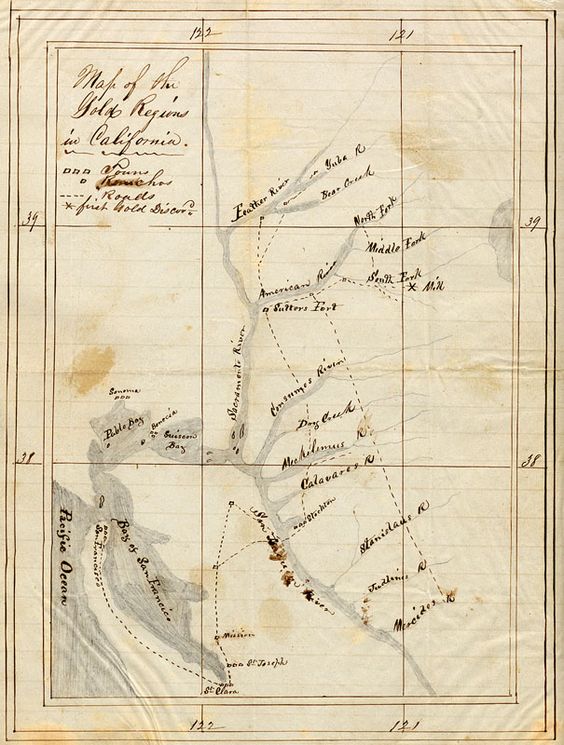 122
121
Map of the
Gold Regions
in California.
Towns
Ranchos
Roads
first Gold Discov.d
39
39
Feather River
Yuba R
Bear Creek
North Fork
Middle Fork
American River
South Fork
Mill
Sutters Fort
Sacramento River
Consumes River
Sonoma
Pablo Bay
Benecia
Suiscon
Bay
Dry Creek
38
38
Michelemus R
Calavares R
Stockton
San
River
Stanislaus R
Pacific Ocean
San Francisco
Bay of San Francisco
Mercides R
Mission
St. Joseph
St. Clara
122
121